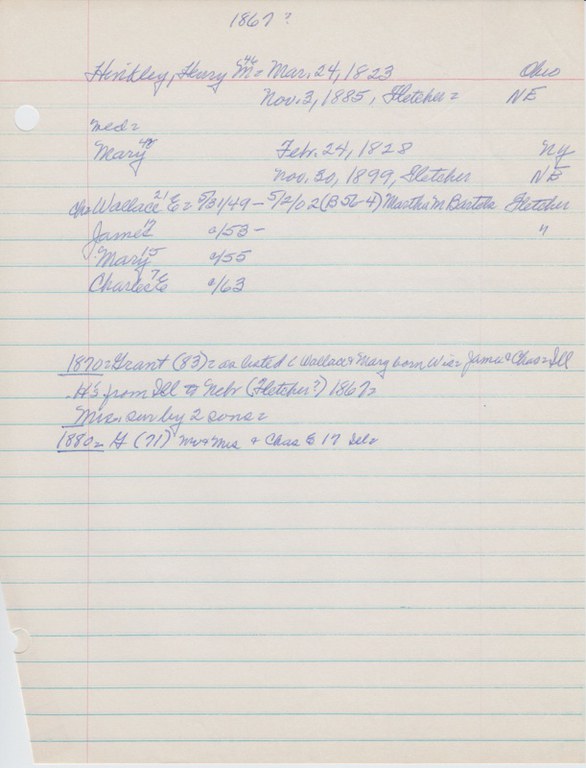 1867?
Hinkley, Henry M= 46 Mar. 24, 1823 Ohio
Nov. 3, 1885, Fletcher= NE
med=
Mary 42 Febr. 24, 1828 NY
Nov. 30, 1899, Fletcher NE
Ch= Wallace 21 E= 5/31/49 - 5/2/02 (B56-4) Martha M Bartels Fletcher
James 17 c/53 - "
Mary 15 c/55
Charles E 7 c/63
1870= Grant (83)= as listed c Wallace & Mary born Wis= James & Chas= Ill
H's from Ill to Nebr (Fletcher?) 1867=
Mrs. sur by 2 sons=
1880= G (71) Mr & Mrs & Chas E 17 Ill=